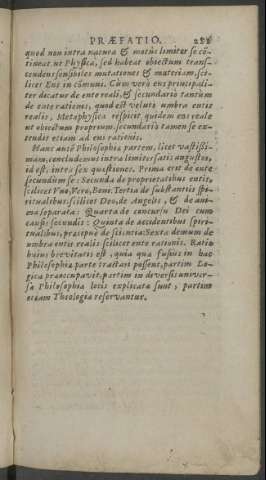 PRÆFATIO.
quod non intra naturæ & motus limites se cō-
tineat ut Physica, sed habeat obiectum trans-
cendens sensibiles mutationes & materiam, sci-
licet Ens in cōmuni. Cùm verò ens principali-
ter dicatur de ente reali, & secundariò tantùm
de ente rationis, quod est veluti umbra entis
realis, Metaphysica respicit quidem ens reale
ut obiectum proprium, secundariò tamen se ex-
tendit etiam ad ens rationis.
Hanc autē Philosophiæ partem, licet vastissi-
mam, concludemus intra limites satis angustos,
id est, intra sex quæstiones. Prima erit de ente
secundùm se: Secunda de proprietatibus entis,
scilicet Vno, Vero, Bono: Tertia de substantiis spi-
ritualibus, scilicet Deo, de Angelis, & de ani-
ma separata: Quarta de concursu Dei cum
causis secundis: Quinta de accidentibus spiri-
tualibus, præcipuè de scientia: Sexta demum de
umbra entis realis scilicet ente rationis. Ratio
huius brevitatis est, quia quæ fusiùs in hac
Philosophiæ parte tractari possent, partim Lo-
gica præoccupavit, partim in diversis univer-
sæ Philosophiæ locis explicata sunt, partim
etiam Theologiæ reservantur.